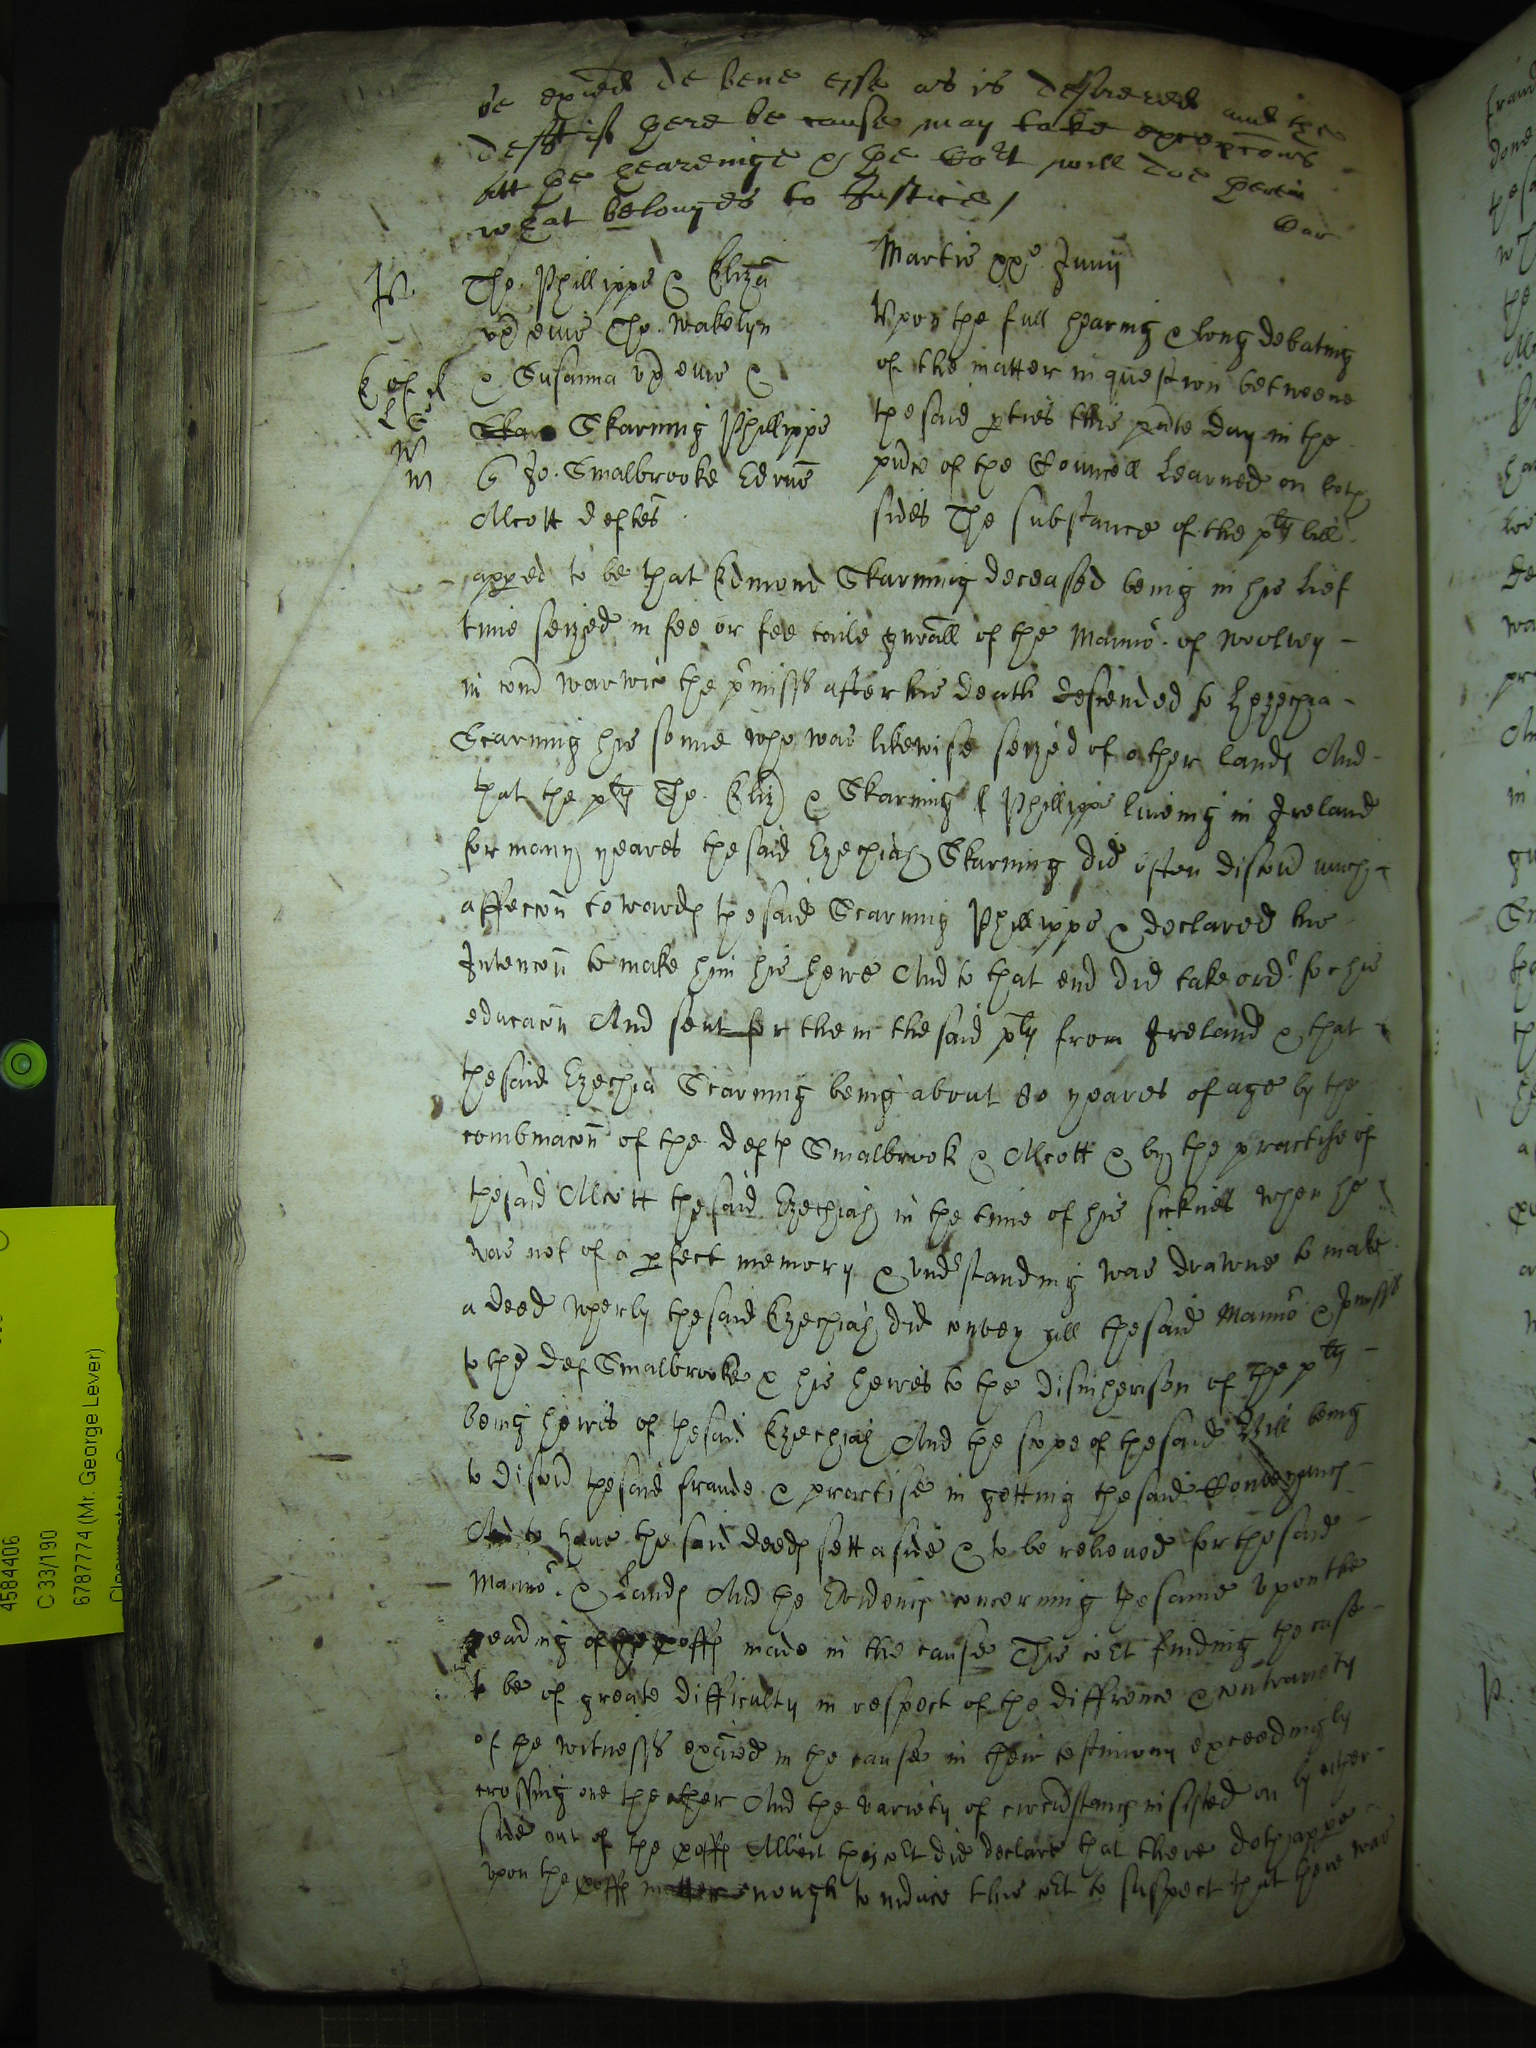 be exãied de bene esse as is desiered and the
deftt if here be cause may take excepcons
att the heareinge & the Cort will doe herein
what belonges to Justice /
Martis xxo Junij
Tho. Phillipps & Eliza
ux eius Tho. Wakelyn
& Susanna ux eius &
Skarning Phillipps
Jo. Smalbrooke Edrus
Alcott deftes
Upon the full hearing & long debating
of the matter in question betweene
the said pties this pñte day in the
pñce of the Councell learned on both
sides The substance of the plts bill
apped to be that Edmond Skarning deceased being in his lief
time seized in fee or fee taile gnrall of the Mannor of Woolvey
in com Warwic the pmisss after his death descended to Hezechia
Scarning his sonne who was likewise seized of other lands And
that the plts Tho. Eliz & Skarning Phillipps liveing in Ireland
for many yeares the said Ezechiah Skarning did often discovr much
affeccon towards the said Scarning Phillipps & declared his
Intencon to make him his heire And to that end did take ordr for his
educacon And sent for them the said plts from Ireland & that
the said Ezechia Scarning being about 80 yeares of age by the
combinacon of the defts Smalbrook & Alcott & by the practise of
the said Alcott the said Ezechiah in the time of his sicknes when he
was not of a pfect memory & undrstanding was drawne to make
a deed wherby the said Ezechiah did convey all the said Mannor & pmisss
to the def Smalbrooke & his heires to the disinherison of the plts
being heires of the said Ezechiah And the scope of the said Bill being
to discovr the said fraude & practise in getting the said Conveyancs
And to have the said deeds sett aside & to be releived for the said
Mannor & Lands And the Evidencs concerning the same Upon the
reading of the proffs made in the cause This cort finding the case
to be of greate difficulty in respect of the diffrence & contrariety
of the witnesss exãied in the cause in their testimony exceedingly
crossing one the other And the variety of circumstancs insisted on by either
side out of the proffs Albeit this cort did declare that there doth appe
upon the proffs enough to induce this cort to suspect that there was
4584406
C 33/190
6787774 (Mr. George Lever)